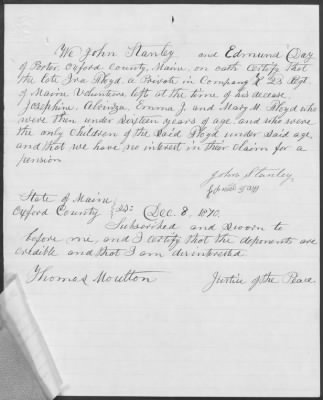 We John Stanley and Edmund Day
of Porter, Oxford County, Maine, on oath certify that
the late Ira Floyd a Private in Company K 23 Regt
of Maine Volunteers left at the time of his decease
Josephine, Alvinza, Emma J. and Mary M. Floyd who
were then under Sixteen years of age and who were
the only children of the Said Floyd under Said age,
and that we have no interest in their claim for a
pension
John Stanley
Edmund Day
State of Maine
Oxford County SS: Dec. 8, 1870.
Subscribed and Sworn to
before me, and I certify that the deponents are
credible and that I am disinterested
Thomas Moulton Justice of the Peace